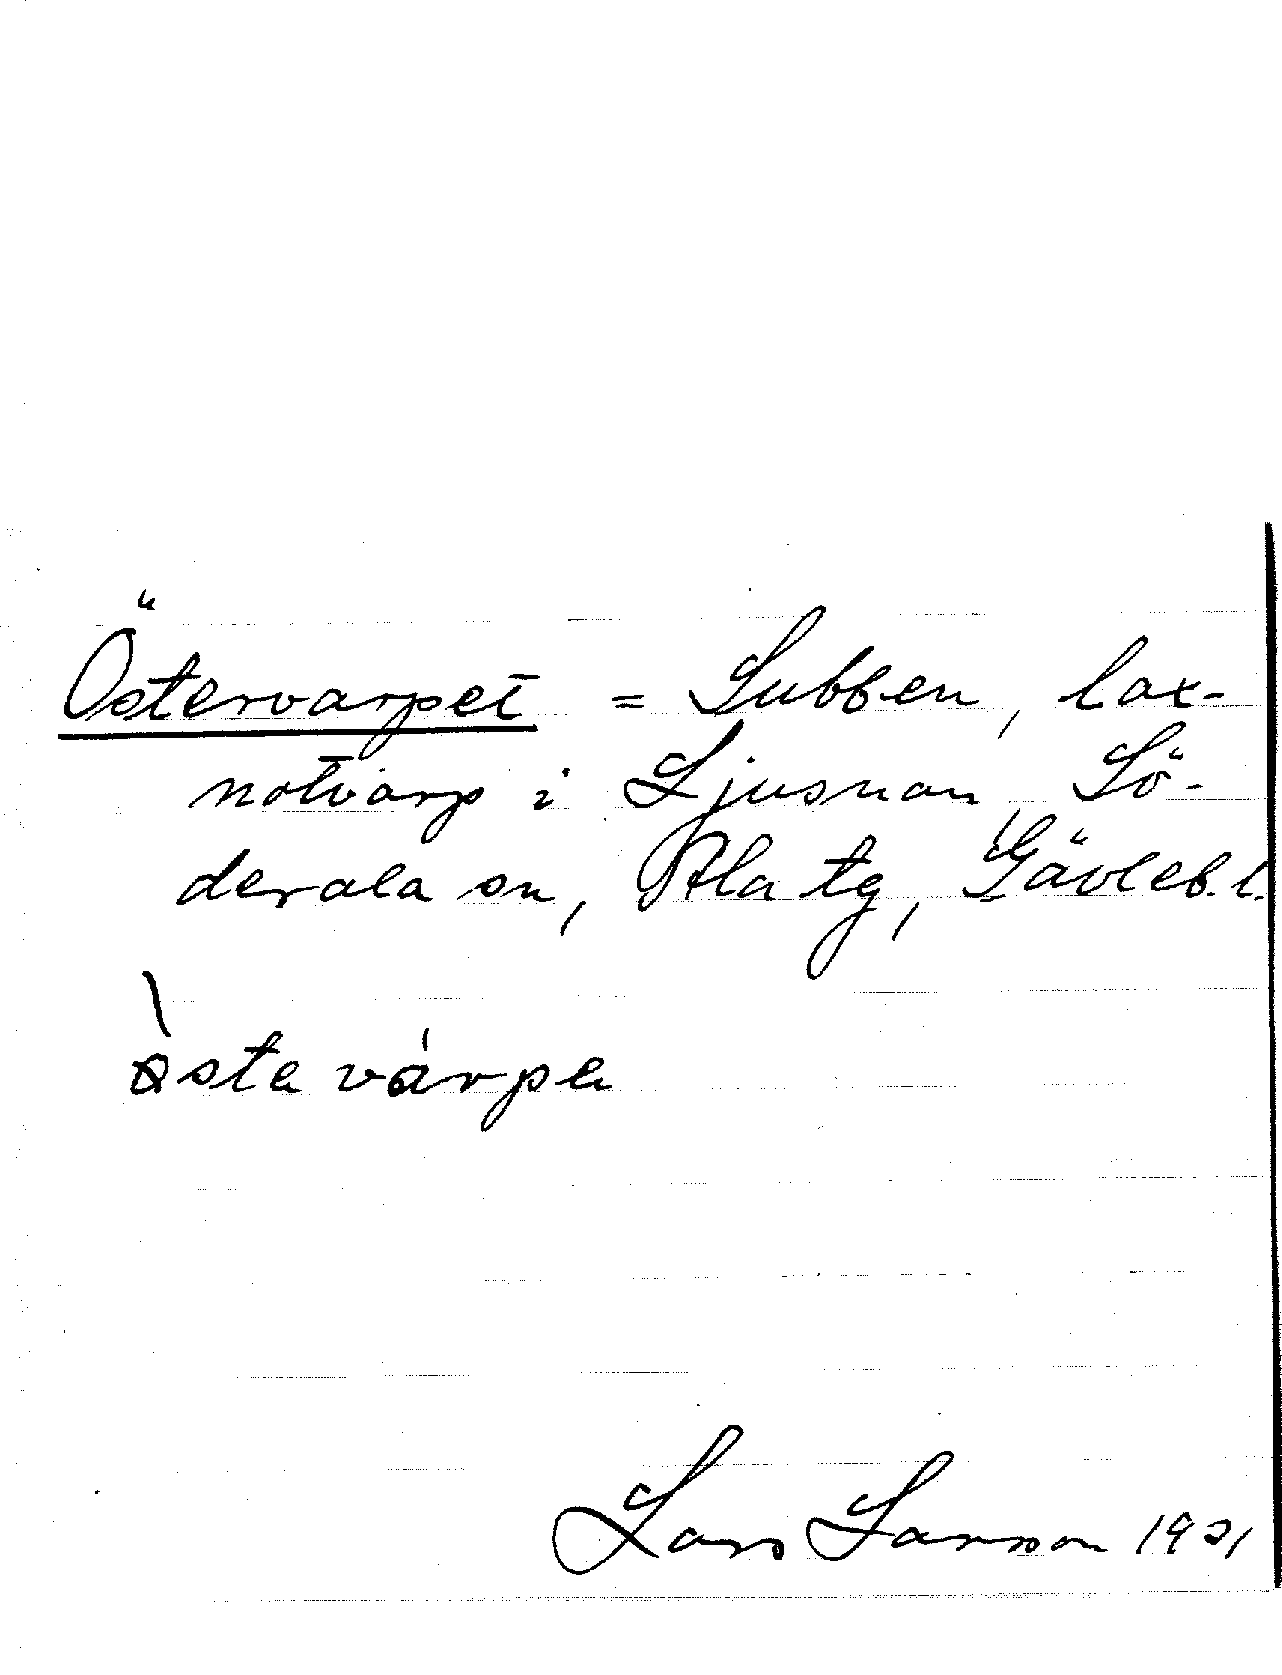 Östervarpet = Subben, lax-
notvarp i Ljusnan, Sö-
derala sn, Ala tg, Gävleb. l.
östa várpa
Lars Larsson 1921